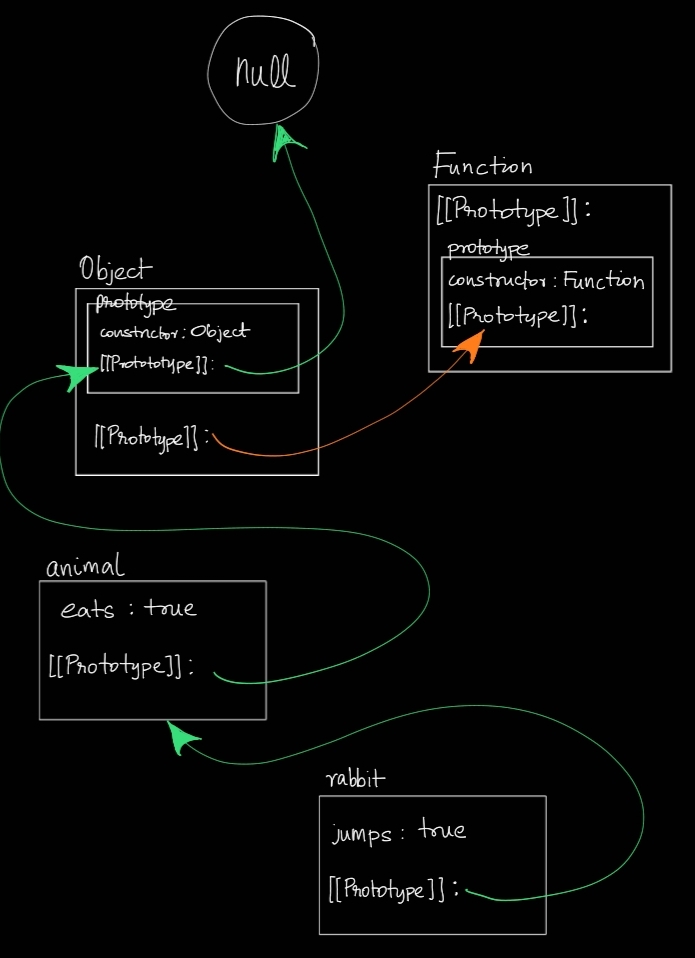 null
Function
[[Prototype]]:
prototype
constructor: Function
[[Prototype]]:
Object
prototype
constructor: Object
[[Protototype]]:
[[Prototype]]:
animal
eats : true
[[Prototype]]:
rabbit
jumps: true
[[Prototype]]: